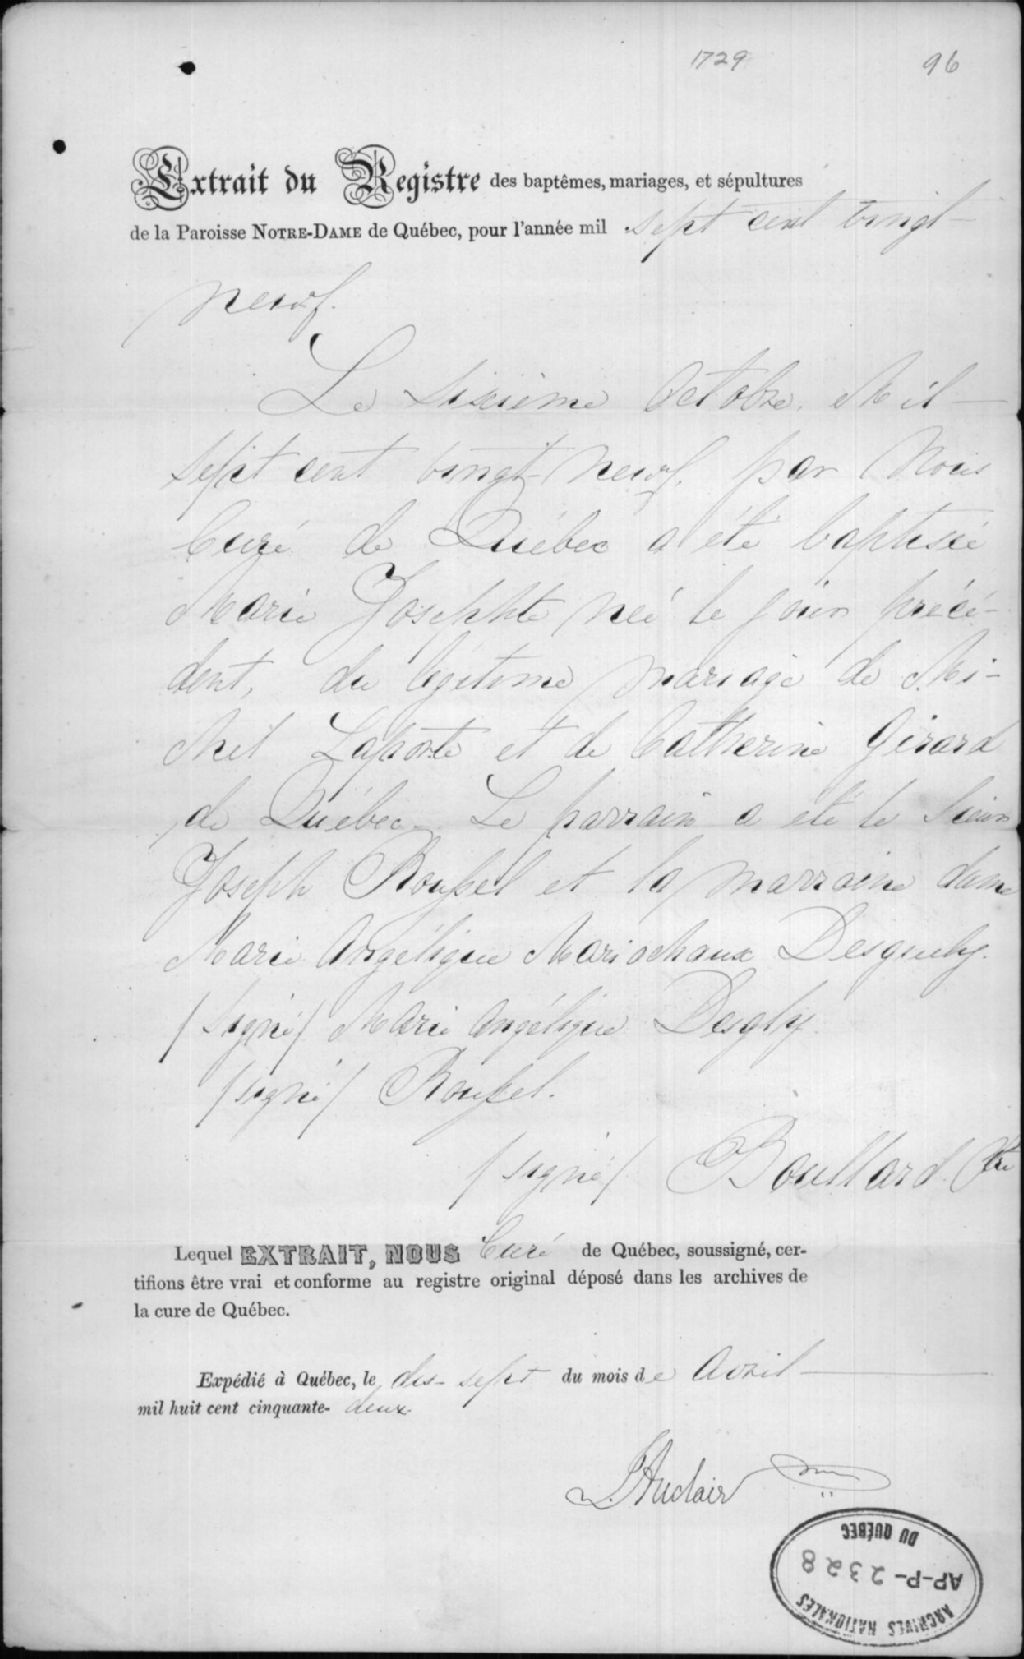 1729 96
Extrait du Registre des baptêmes, mariages, et sépultures
de la Paroisse NOTRE-DAME de Québec, pour l'année mil sept cent vingt-
neuf.
Le sixième Octobre Mil
sept cent vingt-neuf, par Nous
Curé de Québec a été baptisée
Marie Josephte née le jour précé-
dent, du légitime mariage de Mi-
chel Laporte et de Catherine Girard
de Québec. Le parrain a été le Sieur
Joseph Roussel et la marraine dame
Marie Angélique Mariochaux Desguely.
/signé/ Marie Angélique Desgly.
/signé/ Roussel.
/signé/ Boullard. Ptre
Lequel EXTRAIT, NOUS Curé de Québec, soussigné, cer-
tifions être vrai et conforme au registre original déposé dans les archives de
la cure de Québec.
Expédié à Québec, le dix-sept du mois de Avril
mil huit cent cinquante-deux
L. Auclair
ARCHIVES NATIONALES
AP-P-2328
DU QUÉBEC